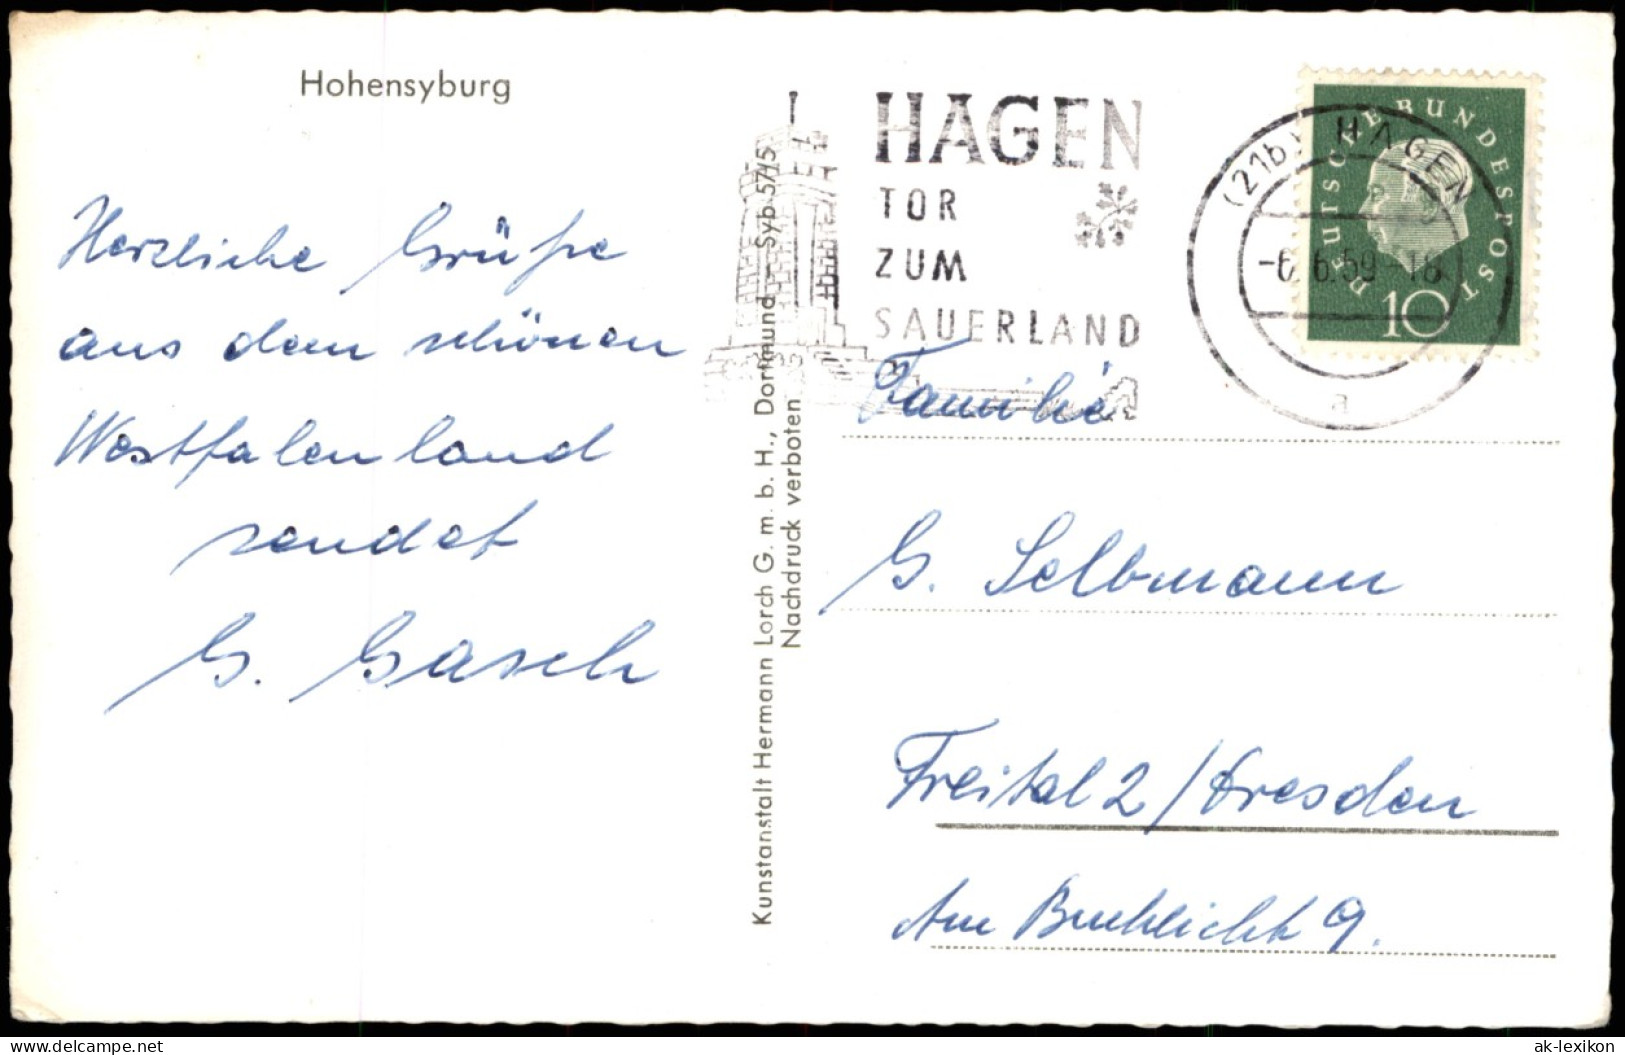 Hohensyburg
Herzliche Grüße
aus dem schönen
Westfalenland
sendet
G. Gasch
Kunstanstalt Hermann Lorch G. m. b. H., Dortmund – Syb 57/5
Nachdruck verboten
HAGEN
TOR
ZUM
SAUERLAND
(21b) HAGEN
-6.6.59-18
a
DEUTSCHE BUNDESPOST
10
Familie
G. Selbmann
Freital 2 / Dresden
Am 9.
ak-lexikon